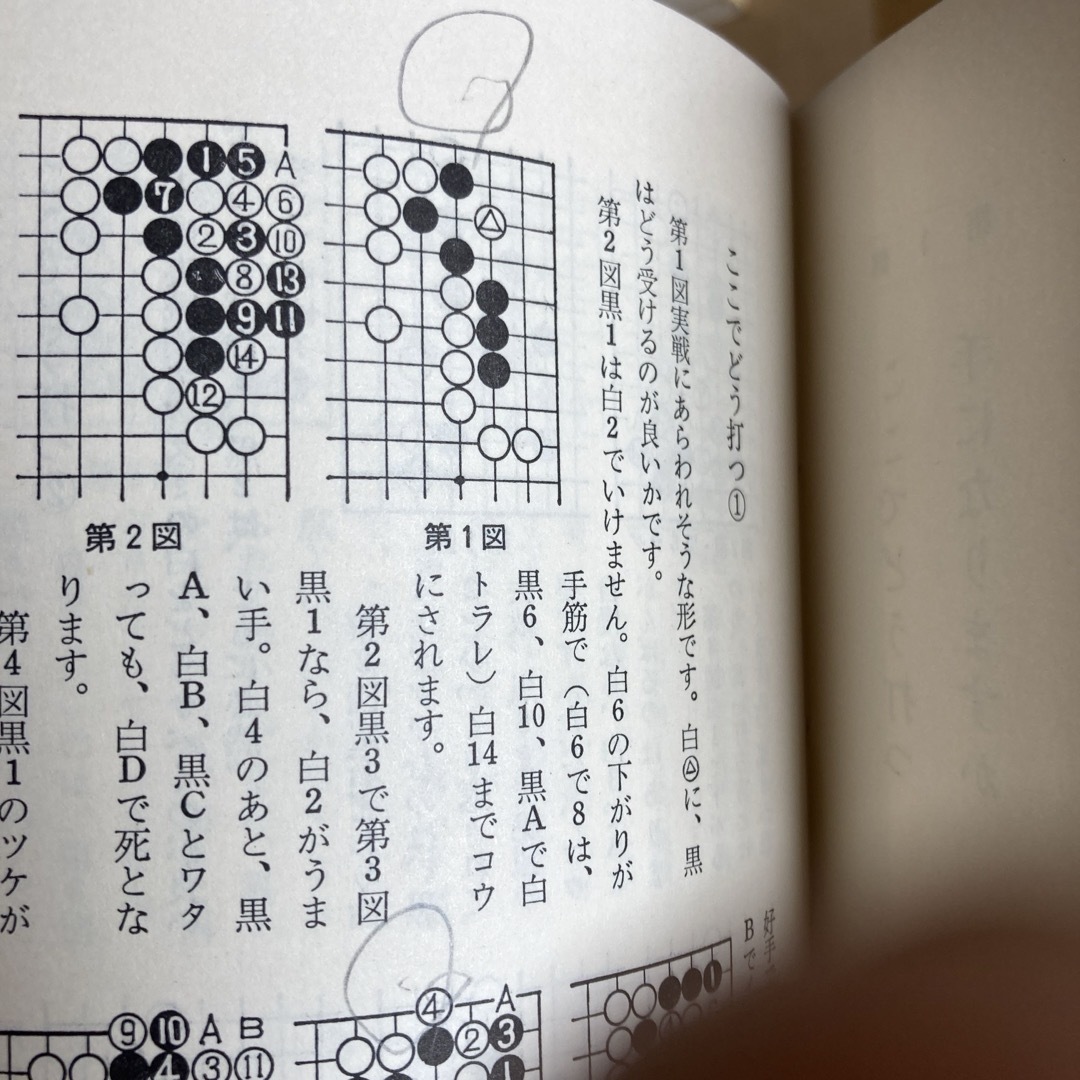 ここでどう打つ①
第1図実戦にあらわれそうな形です。白△に、黒
はどう受けるのが良いかです。
第2図黒1は白2でいけません。白6の下がりが
手筋で（白6で8は、
黒6、白10、黒Aで白
トラレ）白14までコウ
にされます。
第2図黒3で第3図
黒1なら、白2がうま
い手。白4のあと、黒
A、白B、黒Cとワタ
っても、白Dで死とな
ります。
第4図黒1のツケが
第1図
第2図
1 5 A
7 4 6
2 3 10
8 13
9 11
14
12
好手
Bで
1
4 A
2 3
1
9 10 A B
4 3 11